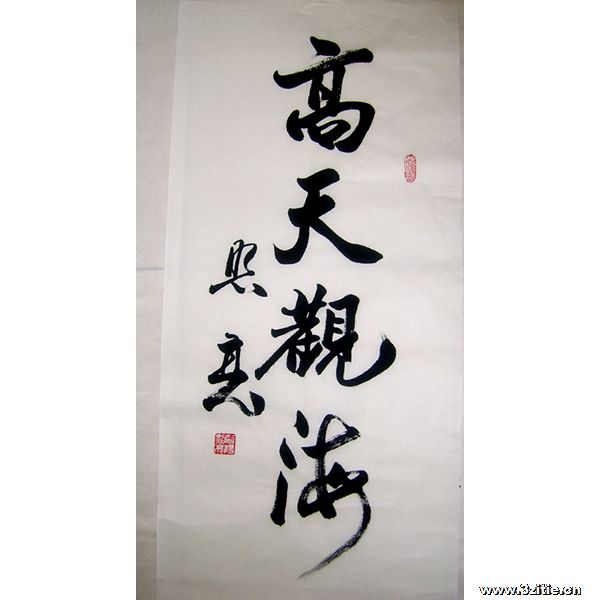 高天觀海
www.3zitie.cn